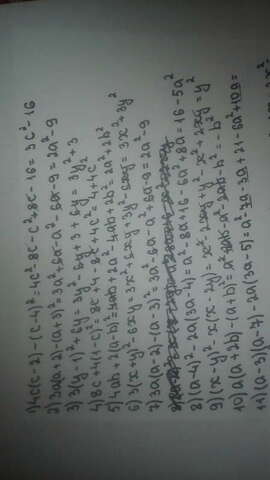 1) 4c(c-2)-(c-4)²=4c²-8c-c²+8c-16=3c²-16
2) 3a(a+2)-(a+3)²=3a²+6a-a²-6a-9=2a²-9
3) 3(y-1)²+6y=3y²-6y+3+6y=3y²+3
4) 8c+4(1-c)²=8c+4-8c+4c²=4+4c²
5) 4ab+2(a-b)²=4ab+2a²-4ab+2b²=2a²+2b²
6) 3(x+y)²-6xy=3x²+6xy+3y²-6xy=3x²+3y²
7) 3a(a+2)-(a-3)²=3a²+6a-a²+6a-9=2a²-9
8) (a-4)²-2a(3a-4)=a²-8a+16-6a²+8a=16-5a²
9) (x-y)²-x(x-2y)=x²-2xy+y²-x²+2xy=y²
10) a(a+2b)-(a+b)²=a²+2ab-a²-2ab-b²=-b²
11) (a-3)(a-7)-2a(3a-5)=a²-7a-3a+21-6a²+10a=